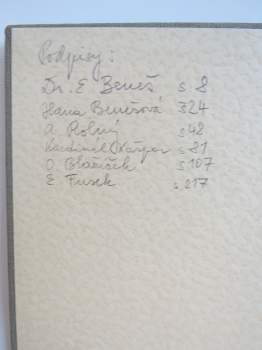 Podpisy:
Dr. E Beneš s. 8
Hana Benešová s 24
A. Rolný s 48
Kardinál Kašpar s 81
O. Blažíček s 107
E. Fusek s. 217